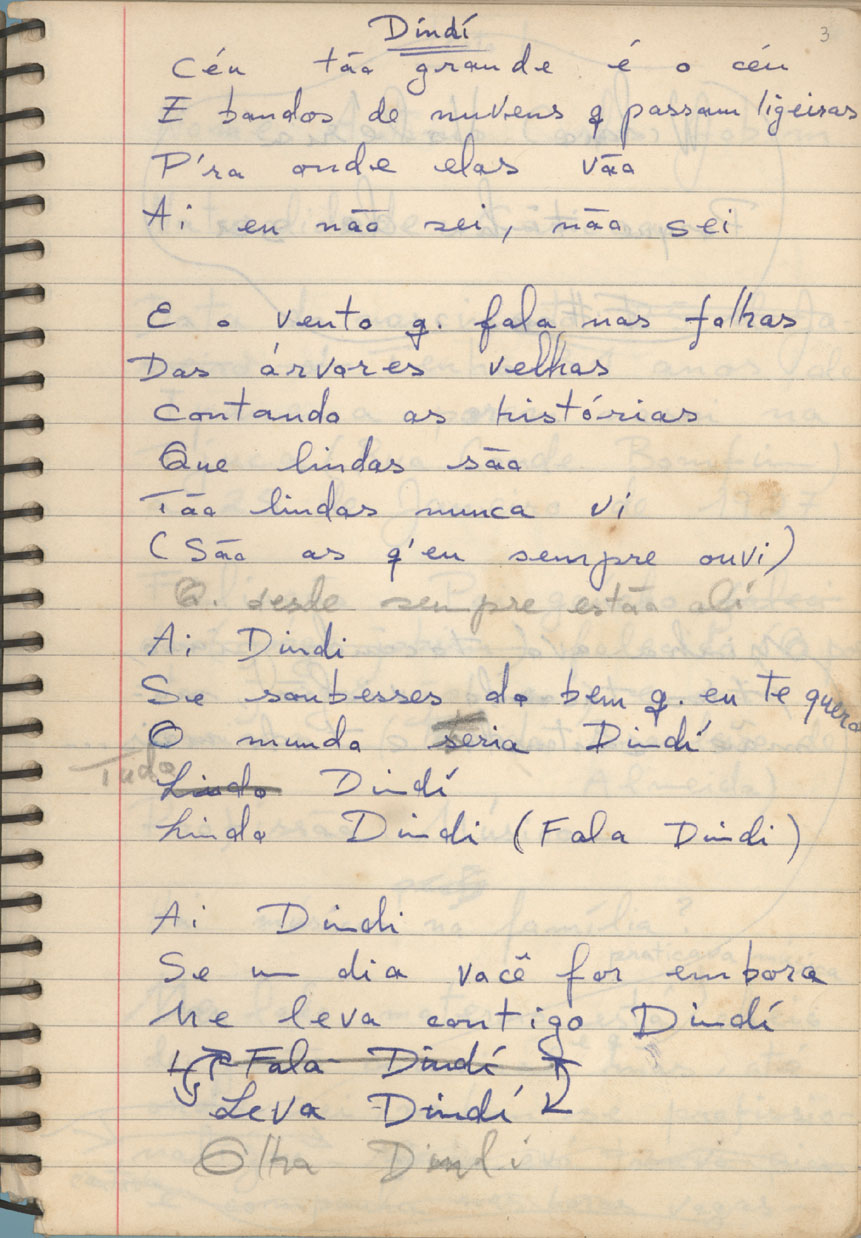 Dindí
3
Céu tão grande é o céu
E bandos de nuvens q passam ligeiras
P'ra onde elas vão
Ai eu não sei, não sei
E o vento q. fala nas folhas
Das árvores velhas
Contando as histórias
Que lindas são
Tão lindas nunca vi
(São as q'eu sempre ouvi)
Q. desde sempre estão alí
Ai Dindi
Se soubesses do bem q. eu te quero
O mundo seria Dindí
Tudo Lindo Dindí
Linda Dindi (Fala Dindi)
Ai Dindi
Se um dia você for embora
Me leva contigo Dindí
Fala Dindí
Leva Dindí
Olha Dindi